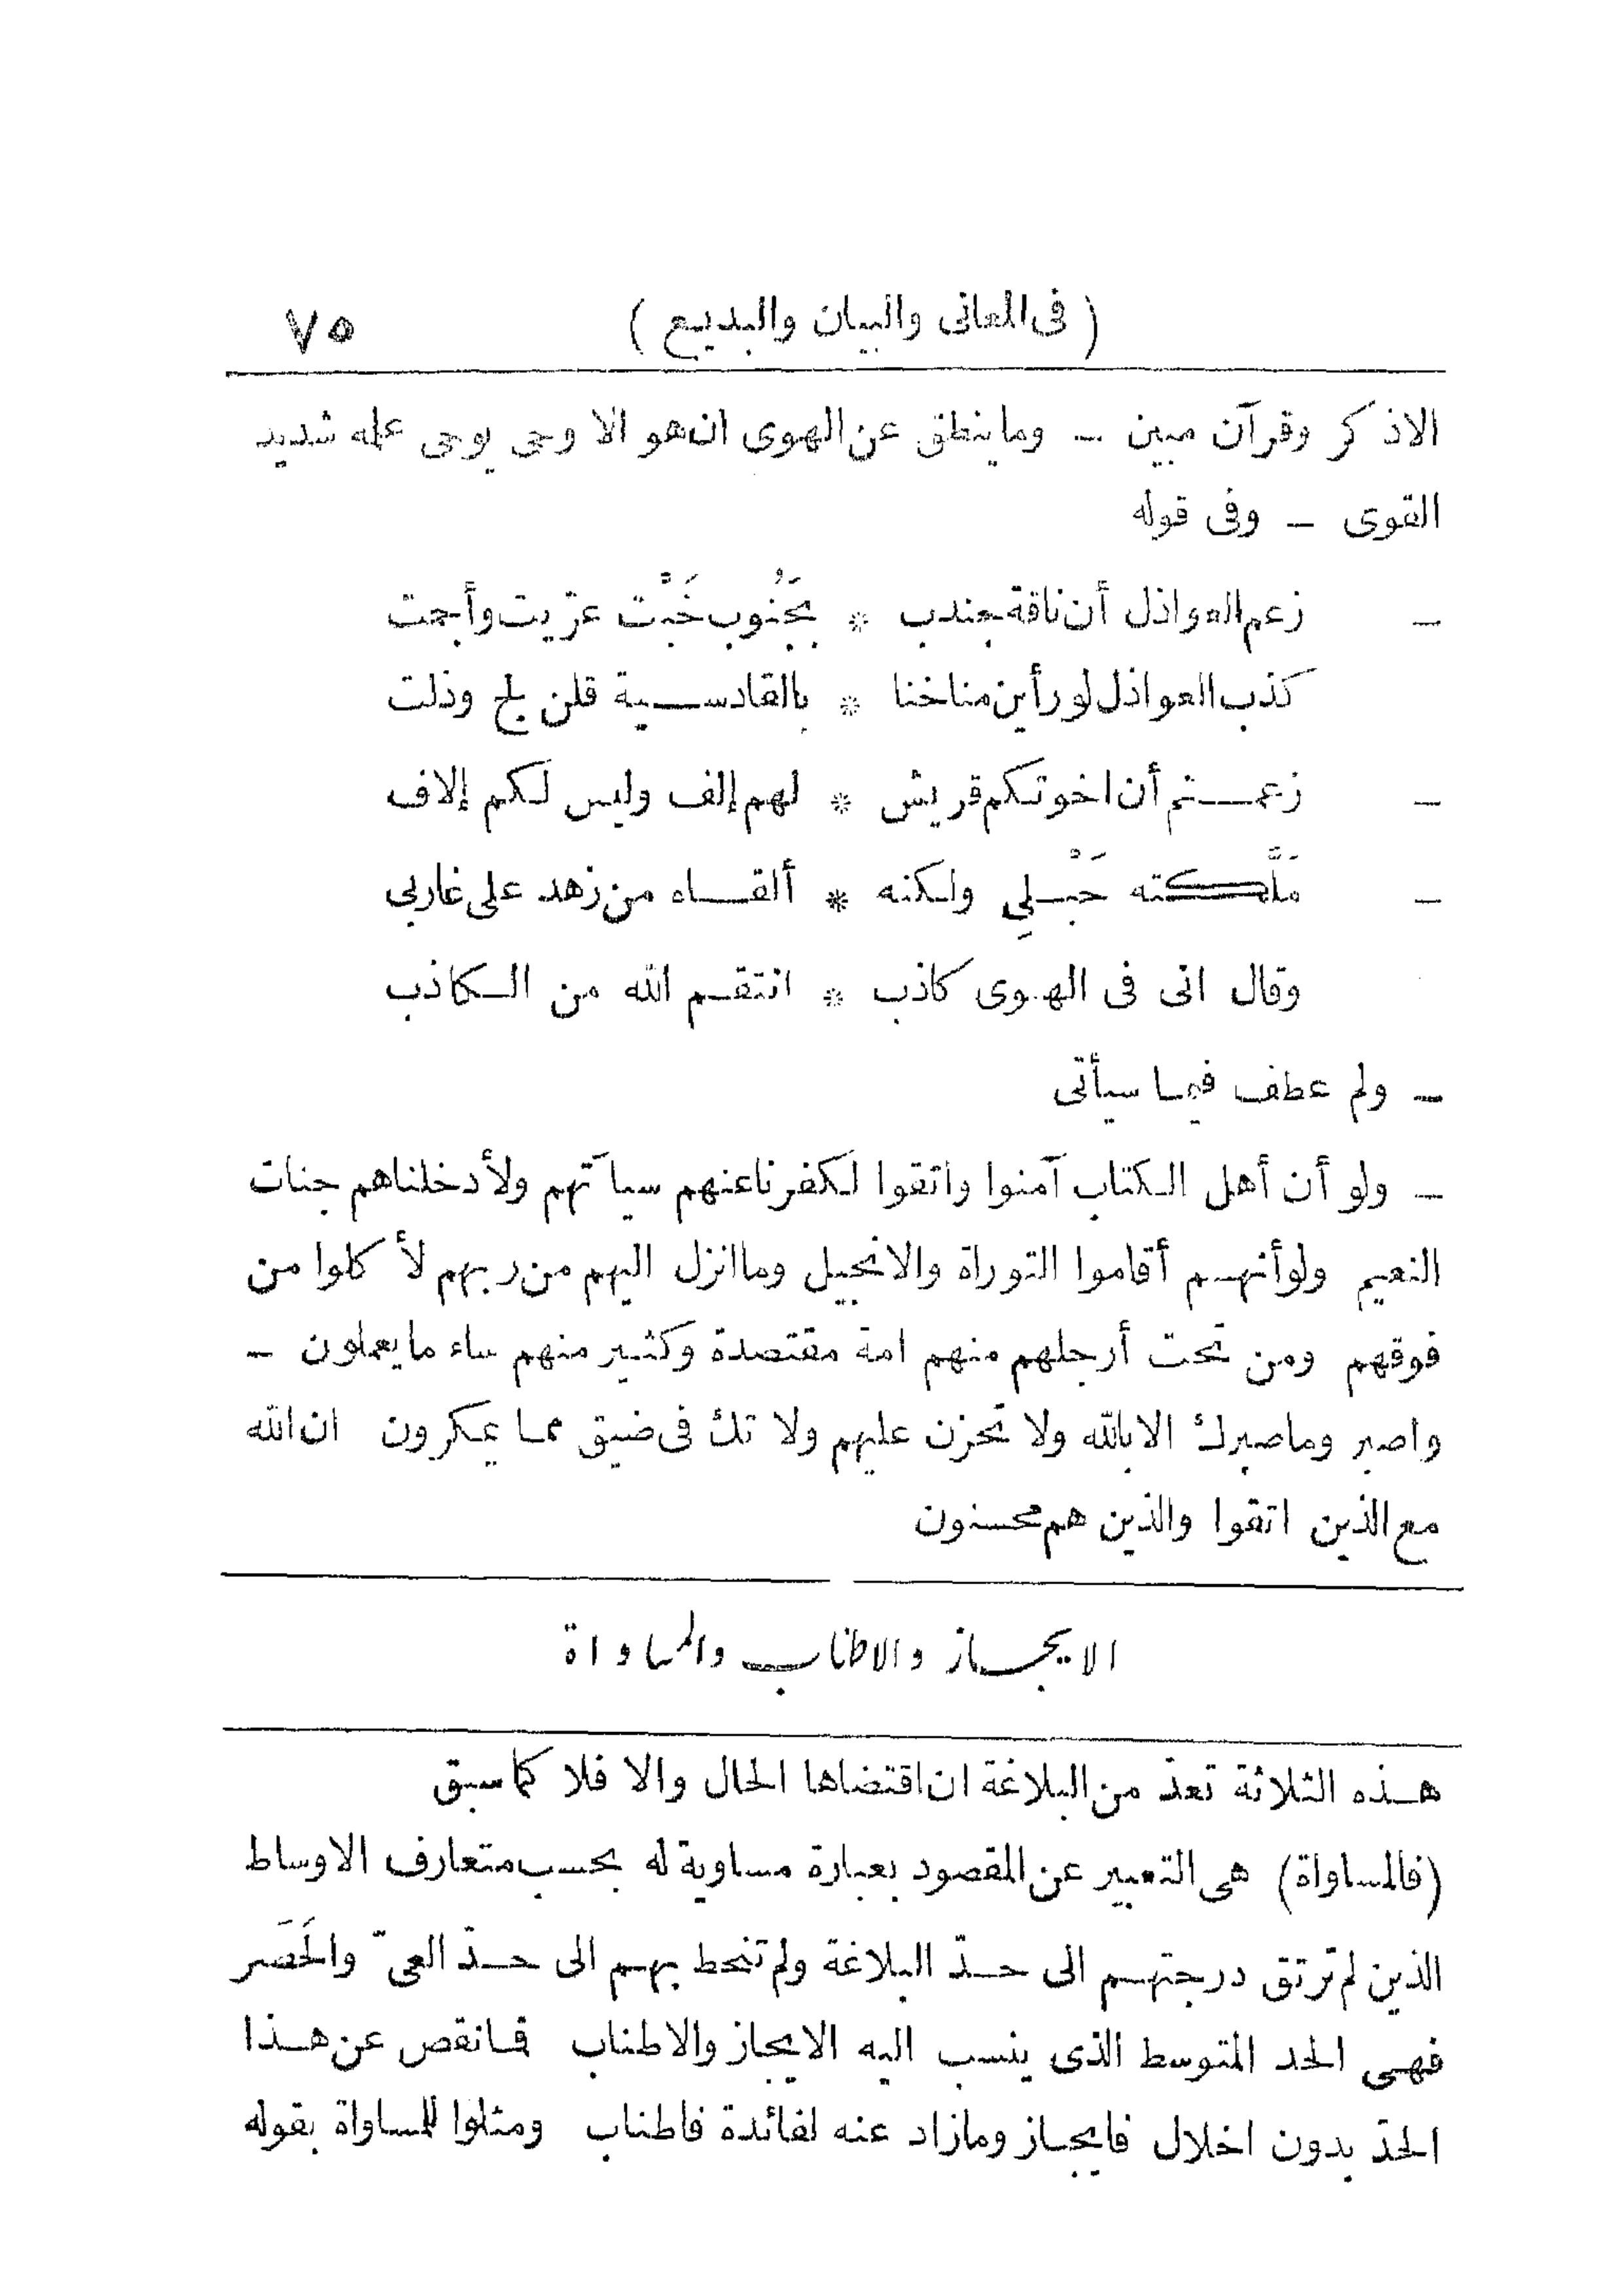 ( فى المعانى والبيان والبديع ) ٧٥
الاذ كر وقرآن مبين — وما ينطق عن الهوى ان هو الا وحى يوحى علمه شديد
القوى — وفى قوله
— زعم العواذل أن ناقة جندب * بِجَنُوب خَبْت عرّيت وأجمت
كذب العواذل لو رأين مناخنا * بالقادسية قلن لج وذلت
— زعمتم أن اخوتكم قريش * لهم إلف وليس لكم إلاف
— مَلَّكته حَبْلِي ولكنه * ألقاه من زهد على غاربى
وقال انى فى الهوى كاذب * انتقم الله من الكاذب
— ولم عطف فيما سيأتى
— ولو أن أهل الكتاب آمنوا واتقوا لكفرنا عنهم سيآتهم ولأدخلناهم جنات
النعيم ولو أنهم أقاموا التوراة والانجيل وما انزل اليهم من ربهم لأ كلوا من
فوقهم ومن تحت أرجلهم منهم امة مقتصدة وكثير منهم ساء ما يعملون —
واصبر وما صبرك الا بالله ولا تحزن عليهم ولا تك فى ضيق مما يمكرون ان الله
مع الذين اتقوا والذين هم محسنون
الايجاز والاطناب والمساواة
هذه الثلاثة تعدّ من البلاغة ان اقتضاها الحال والا فلا كما سبق
(فالمساواة) هى التعبير عن المقصود بعبارة مساوية له بحسب متعارف الاوساط
الذين لم ترتق درجتهم الى حدّ البلاغة ولم تنحط بهم الى حدّ العىّ والحَصَر
فهى الحد المتوسط الذى ينسب اليه الايجاز والاطناب فما نقص عن هذا
الحدّ بدون اخلال فايجاز وما زاد عنه لفائدة فاطناب ومثلوا للمساواة بقوله